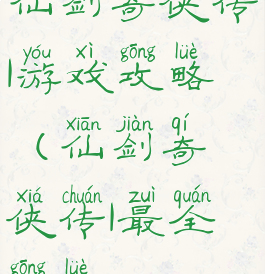 仙剑奇侠传
yóu xì gōng lüè
|游戏攻略
xiān jiàn qí
(仙剑奇
xiá chuán zuì quán
侠传|最全
gōng lüè